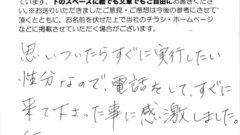 ています。下のスペースに絵でも文章でもご自由にお書きくださ
い。※お送りいただきましたご意見・ご感想は今後の参考にさせて
頂くとともに、お名前を伏せた上で当社のチラシ・ホームページ
などに掲載させていただく場合がございます。
思いついたらすぐに実行したい
性分なので電話をして、すぐに
来て下さった事に感激しました。